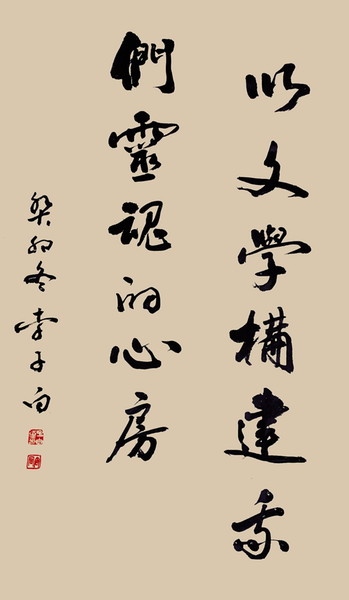 以文學構建我
們靈魂的心房
癸卯冬李子白